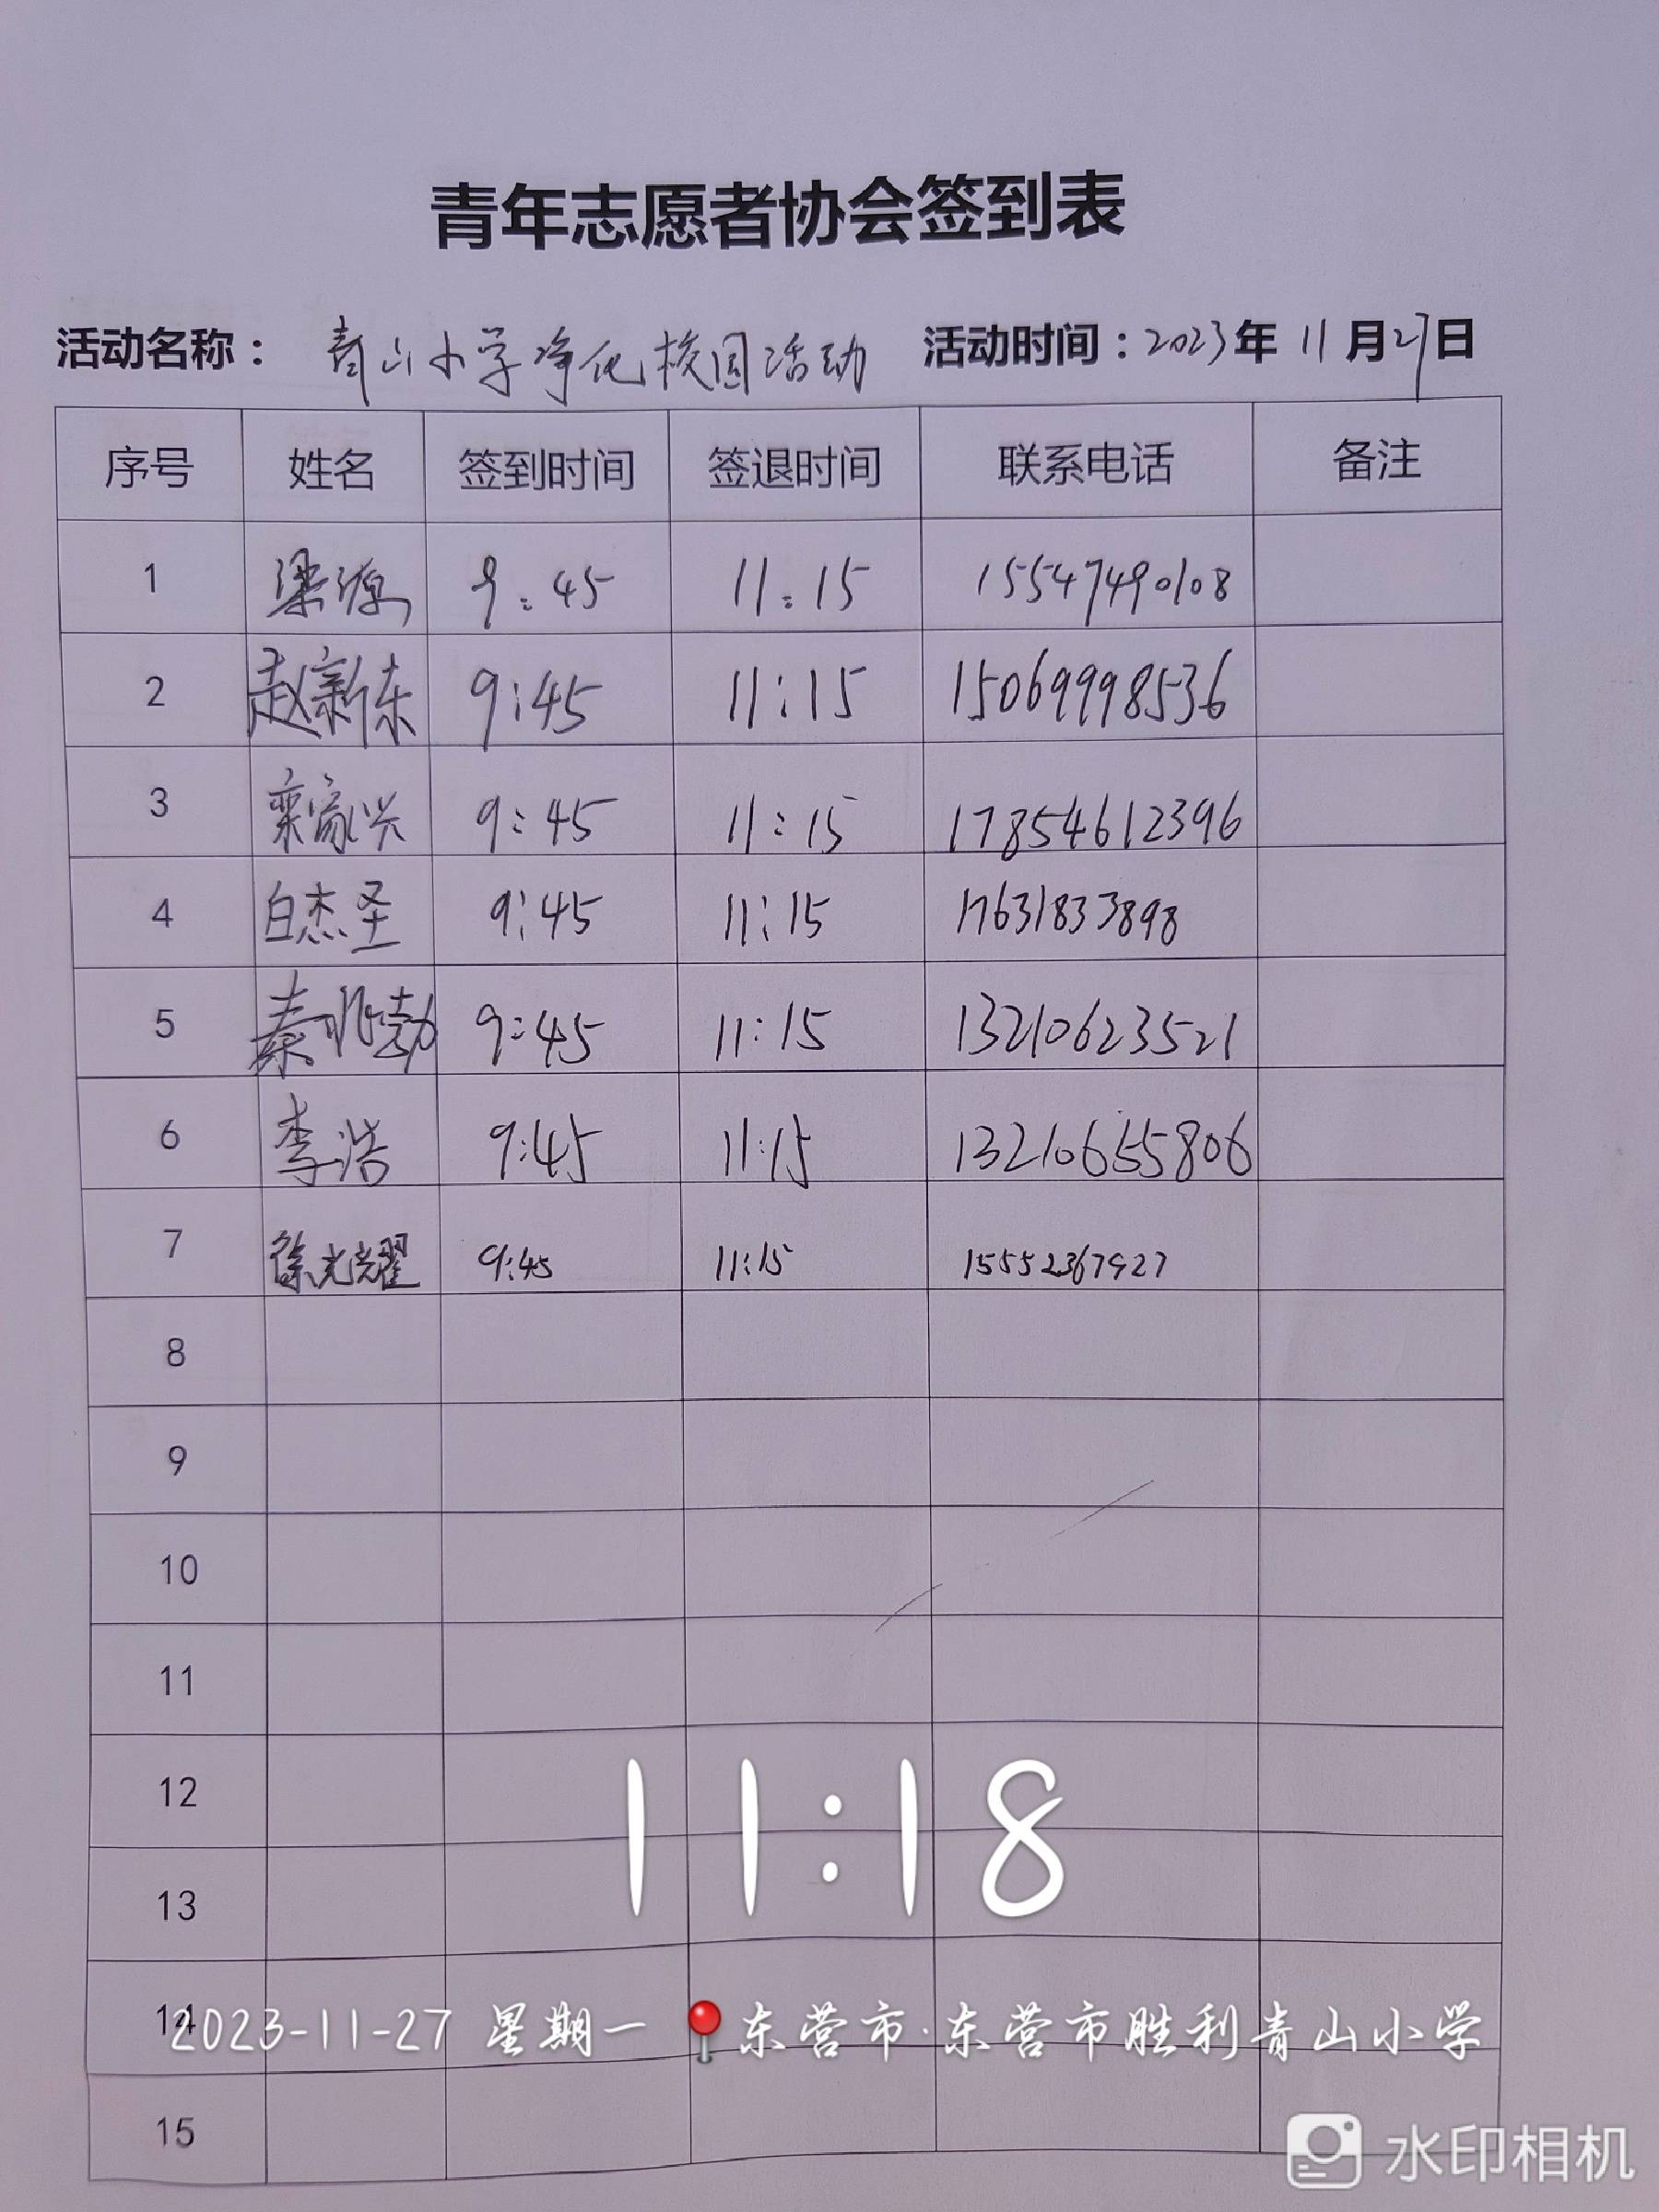 青年志愿者协会签到表
活动名称：青山小学净化校园活动 活动时间：2023年11月27日
序号 姓名 签到时间 签退时间 联系电话 备注
1 梁源 9:45 11:15 15547490108
2 赵新东 9:45 11:15 15069998536
3 栾家兴 9:45 11:15 17854612396
4 白杰圣 9:45 11:15 17631833898
5 秦兆勃 9:45 11:15 13210623521
6 李浩 9:45 11:15 13210655806
7 徐光耀 9:45 11:15 15552367927
8
9
10
11
12
11:18
13
14
2023-11-27 星期一 东营市·东营市胜利青山小学
15
水印相机